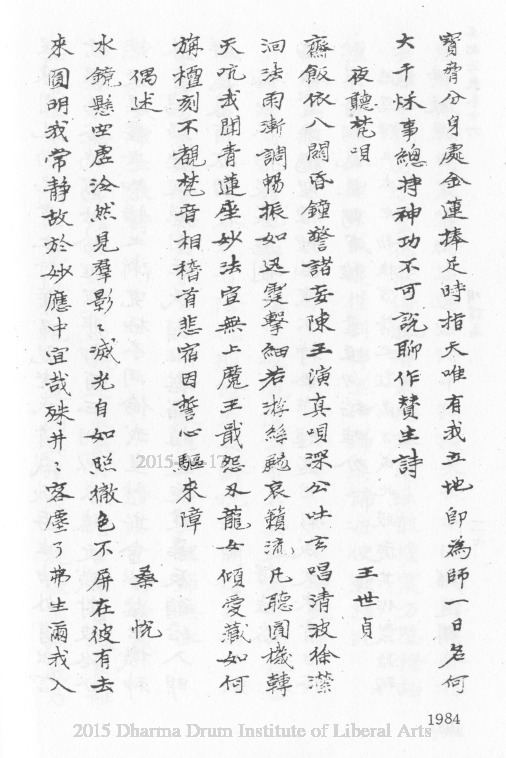 寶脅分身處金蓮捧足時指天唯有我立地卽為師一日名何
大千秌事總持神功不可說聊作贊主詩
夜聽梵唄
王世貞
齋飯依八關昏鐘警諸妄陳王演真唄深公吐玄唱清波徐瀠
洄法雨漸調暢振如迅霆擊細若游絲颺哀籟流凡聽圓機轉
天吭我聞青蓮座妙法宣無上魔王戢怨刃龍女傾愛藏如何
旃檀刻不覩梵音相稽首悲宿因誓心驅來障
偶述
桑悅
水鏡懸空虛泠然見羣影〻滅光自如照徹色不屏在彼有去
來圓明我常静故於妙應中宜哉殊井〻客塵了弗生爾我入
1984
2015 Dharma Drum Institute of Liberal Arts